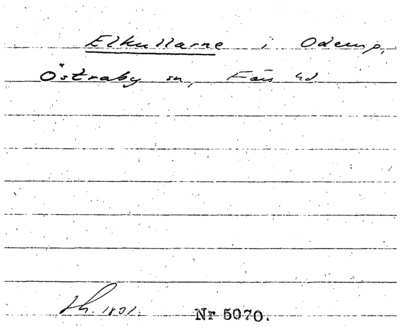 Elkullarne i Odenip,
Östraby sn, Färs hd
1801. Nr 5070.